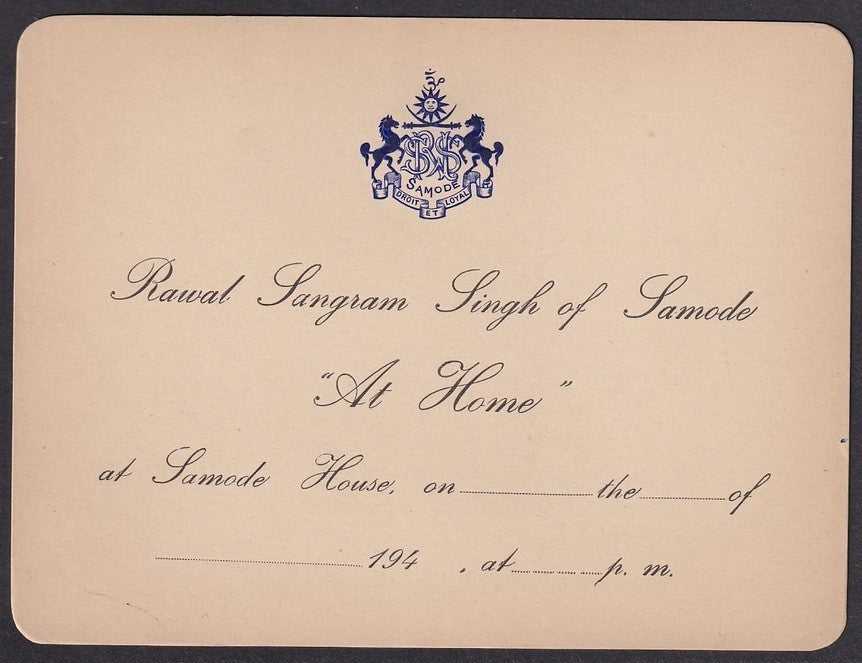 ॐ
RSS
SAMODE
DROIT ET LOYAL
Rawal Sangram Singh of Samode
“At Home”
at Samode House, on ............ the ............ of
............ 194 , at ............ p. m.